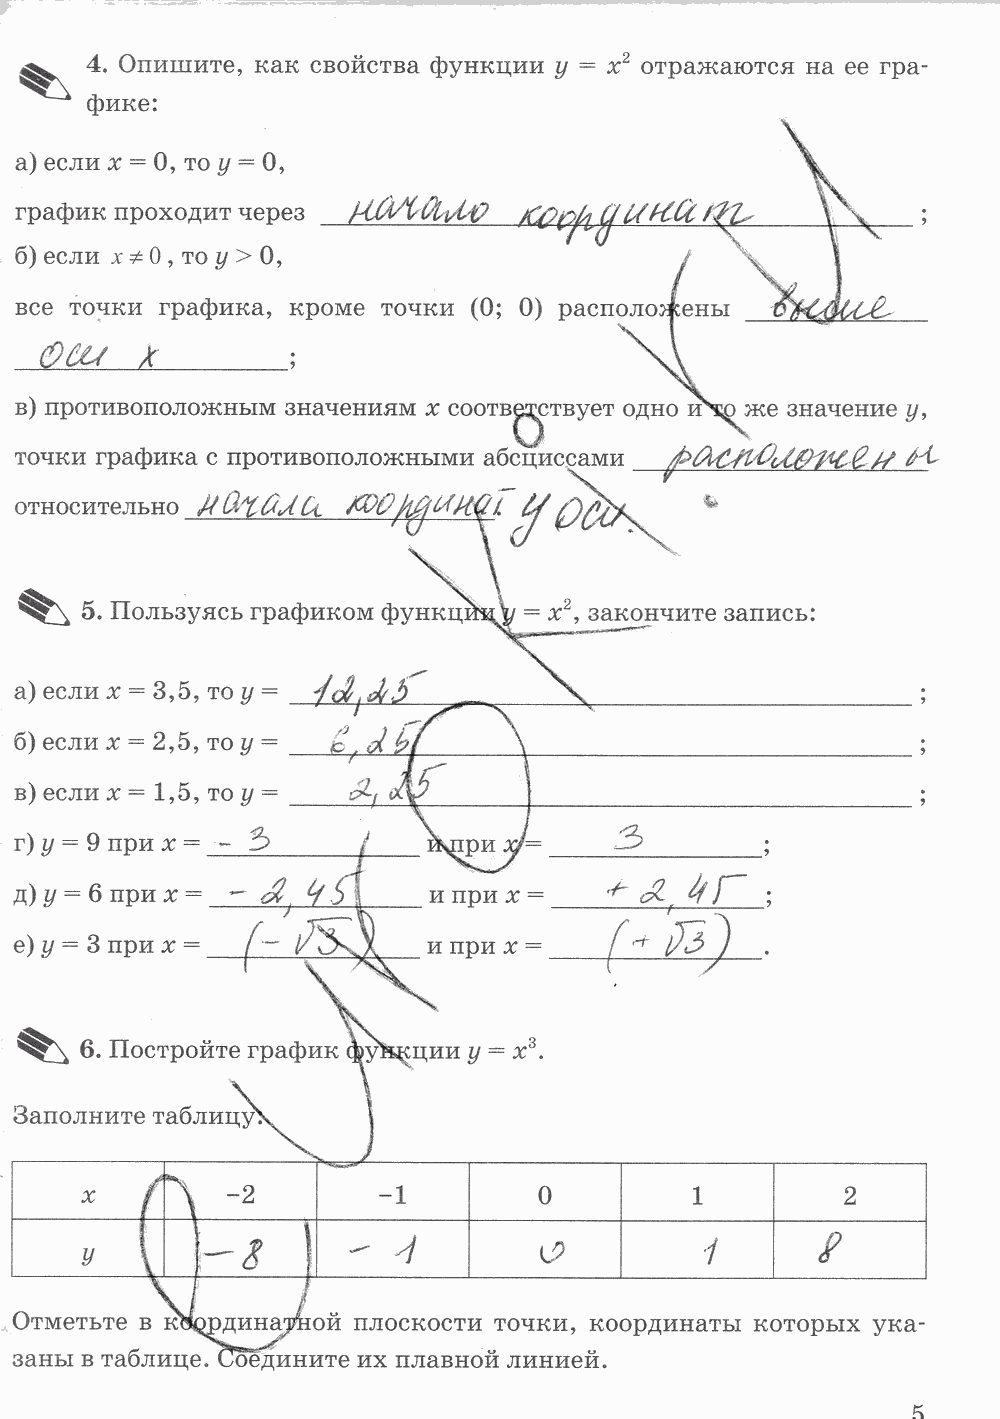 4. Опишите, как свойства функции y = x² отражаются на ее гра-
фике:
а) если x = 0, то y = 0,
график проходит через начало координат ;
б) если x ≠ 0, то y > 0,
все точки графика, кроме точки (0; 0) расположены выше
оси x ;
в) противоположным значениям x соответствует одно и то же значение y,
точки графика с противоположными абсциссами расположены
относительно начала координат. у оси.
5. Пользуясь графиком функции y = x², закончите запись:
а) если x = 3,5, то y = 12,25 ;
б) если x = 2,5, то y = 6,25 ;
в) если x = 1,5, то y = 2,25 ;
г) y = 9 при x = - 3 и при x = 3 ;
д) y = 6 при x = - 2,45 и при x = + 2,45 ;
е) y = 3 при x = (- √3) и при x = (+ √3) .
6. Постройте график функции y = x³.
Заполните таблицу:
x -2 -1 0 1 2
y -8 -1 0 1 8
Отметьте в координатной плоскости точки, координаты которых ука-
заны в таблице. Соедините их плавной линией.
5